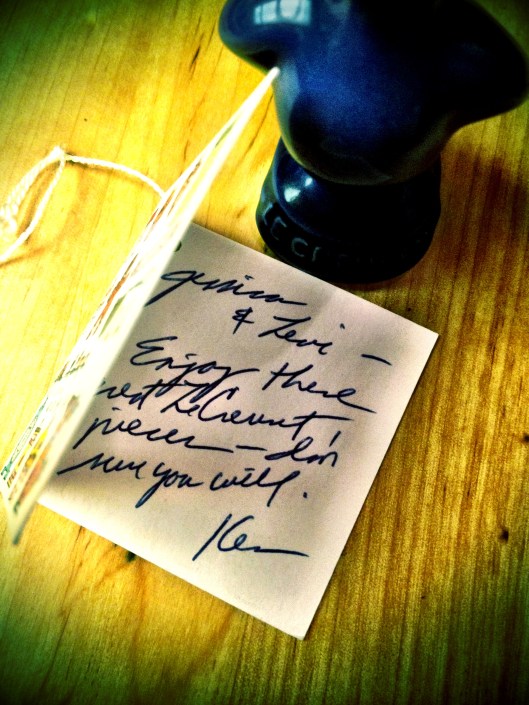 Jessica
& Levi —
Enjoy these
great LeCreuset
pieces — I'm
sure you will.
Ken
LE CR